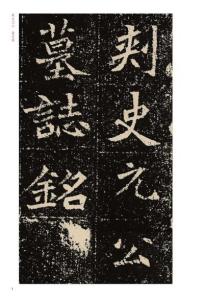 刾史元公
墓誌銘